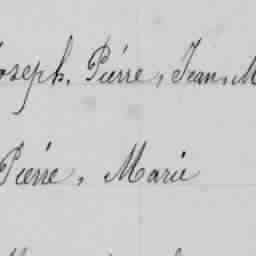 Joseph. Pierre, Jean, M
Pierre, Marie